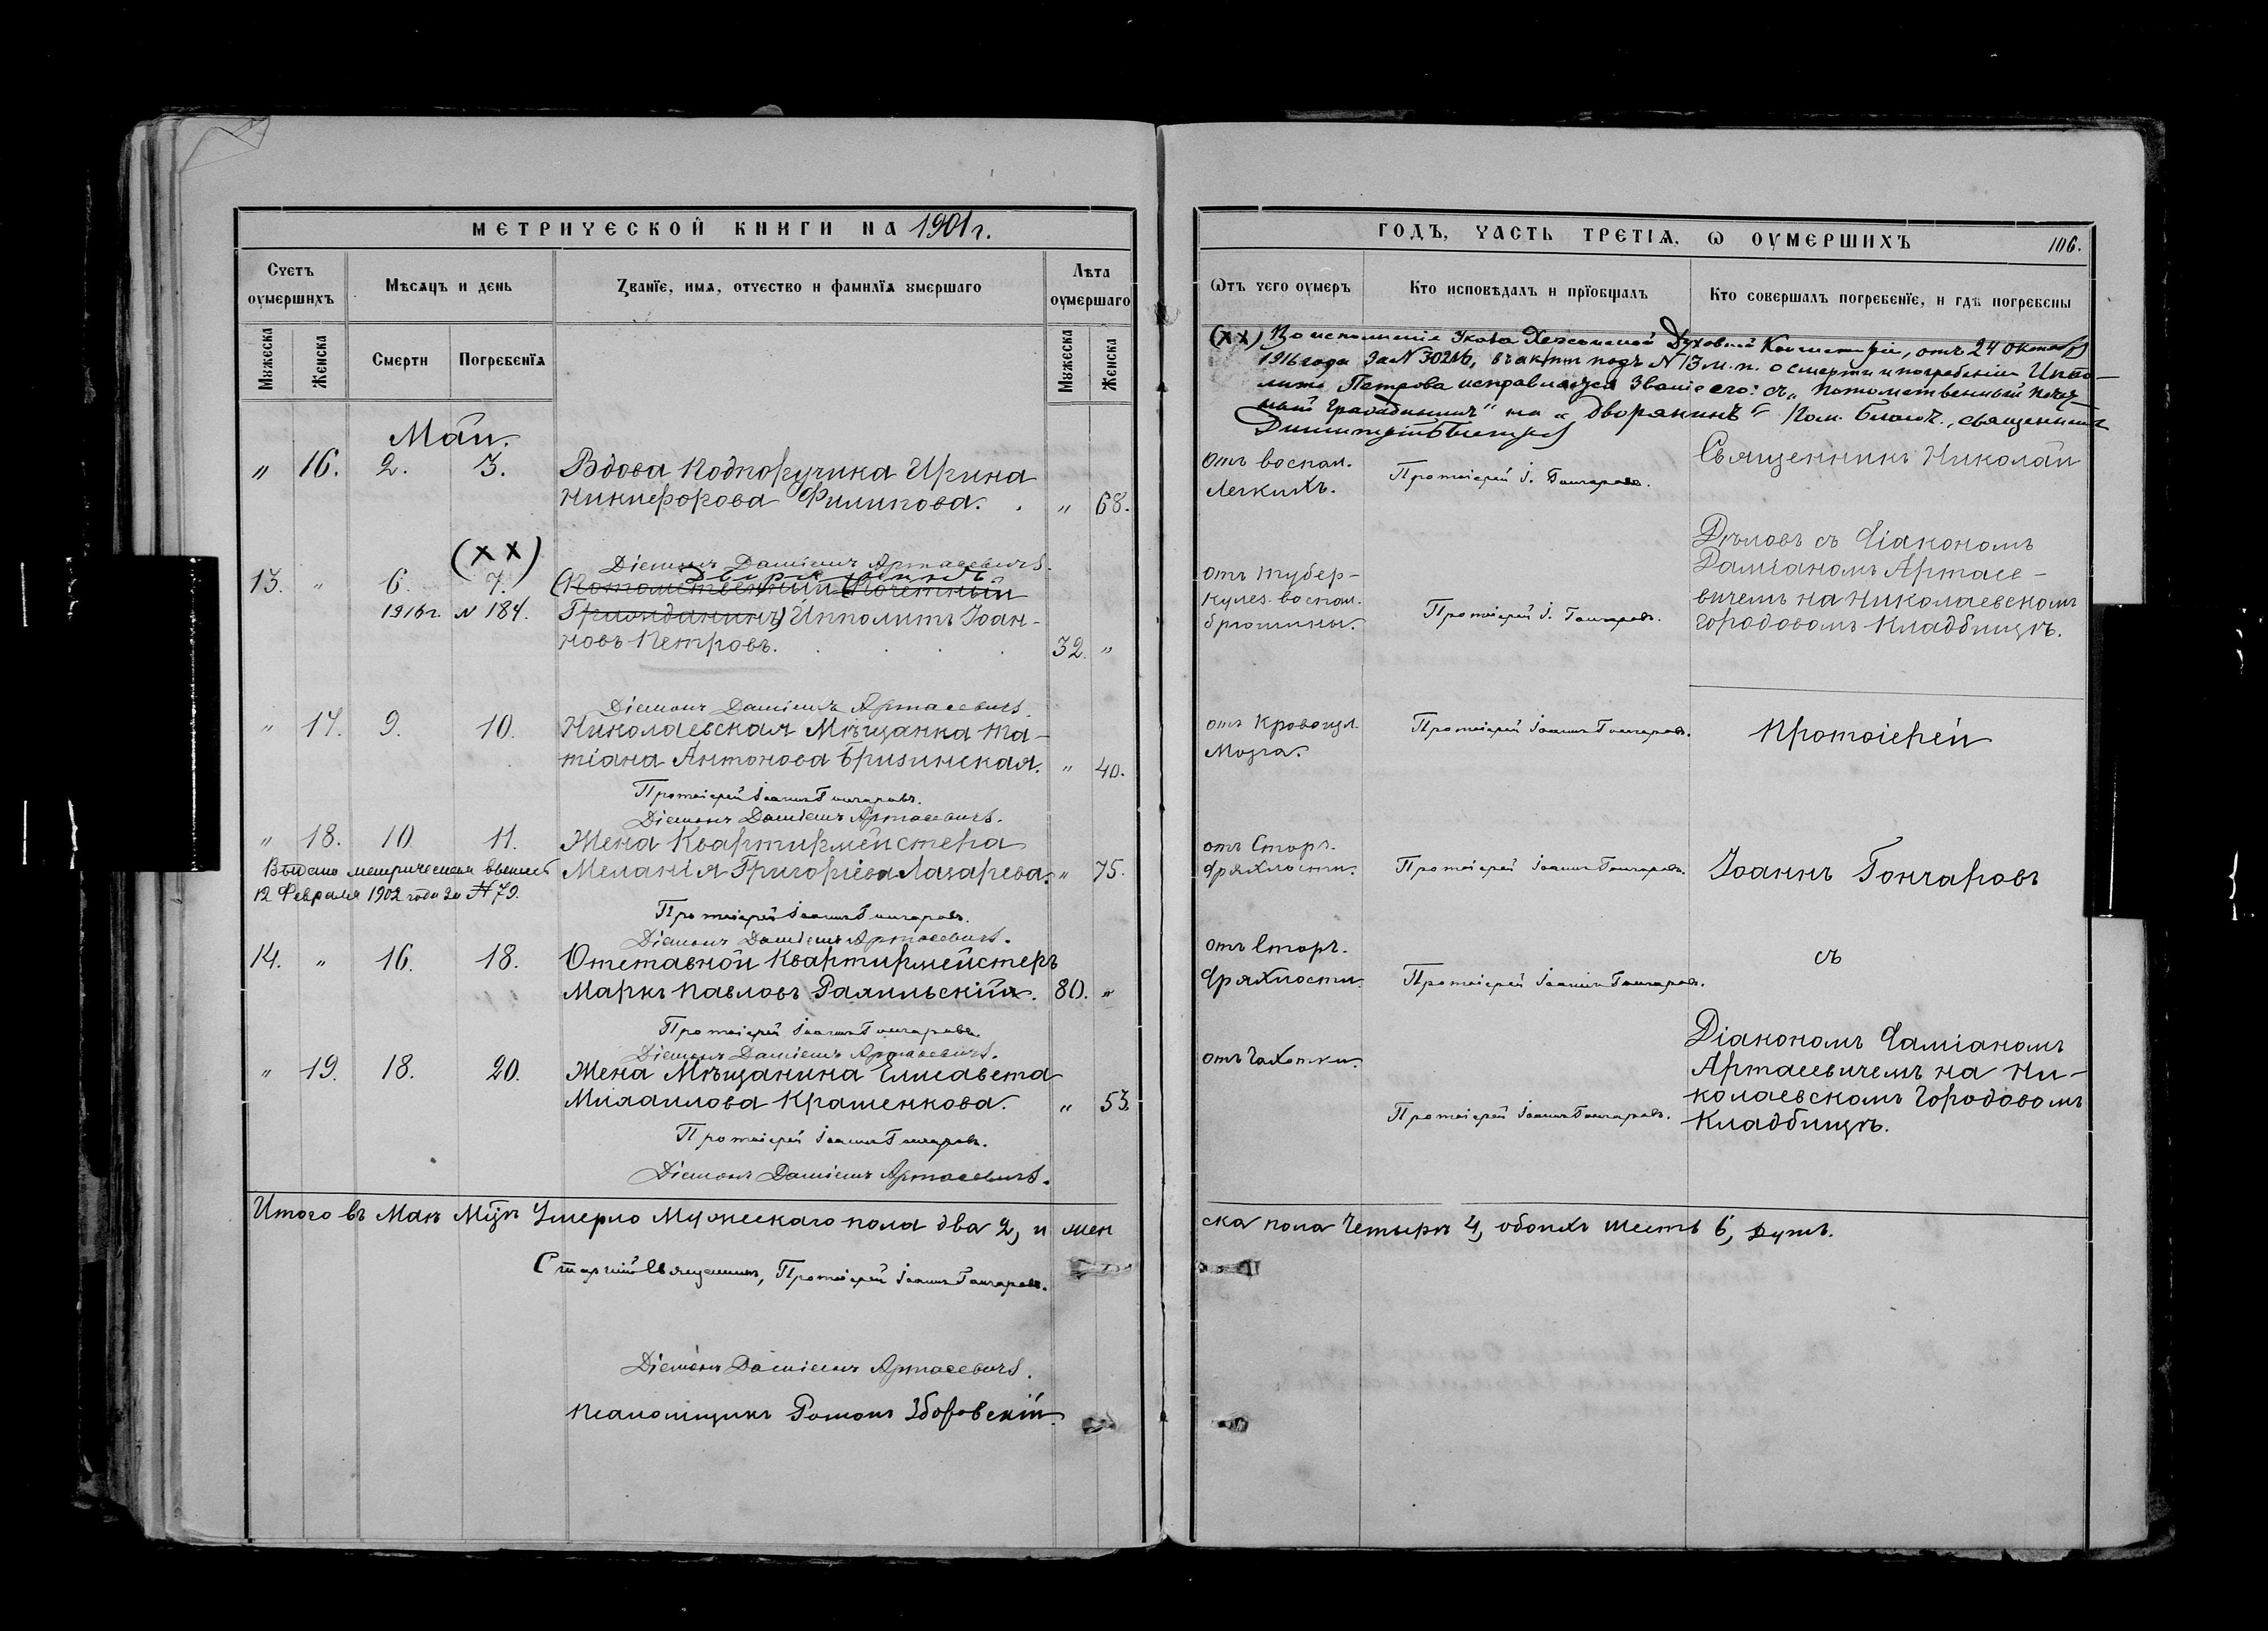 МЕТРИЧЕСКОЙ КНИГИ НА 1901 г.
Счетъ оумершихъ
Мѣсяцъ и день
Званіе, имя, отчество и фамилія умершаго
Лѣта оумершаго
Мужеска
Женска
Смерти
Погребенія
Мужеска
Женска
Май.
„ 16. 2. 3. Вдова Подпоручика Ирина
Никифорова Филипова. „ 68.
Діаконъ Даміанъ Артасевичъ.
(XX)
Дворянинъ
13. „ 6. 7. (Потомственный Почетный
1916 г. N 184. Гражданинъ) Ипполитъ Іоан-
новъ Петровъ. 32. „
Діаконъ Даміанъ Артасевичъ.
„ 17. 9. 10. Николаевская Мѣщанка Та-
тіана Антонова Бризинская. „ 40.
Протоіерей Іоаннъ Гончаровъ.
Діаконъ Даміанъ Артасевичъ.
„ 18. 10 11. Жена Квартирмейстера
Выдана метрическая выпись Меланія Григоріева Лазарева. „ 75.
12 Февраля 1902 года за № 79.
Протоіерей Іоаннъ Гончаровъ.
Діаконъ Даміанъ Артасевичъ.
14. „ 16. 18. Отставной Квартирмейстеръ
Маркъ Павловъ 80. „
Протоіерей Іоаннъ Гончаровъ.
Діаконъ Даміанъ Артасевичъ.
„ 19. 18. 20. Жена Мѣщанина Елисавета
Михаилова Крашенкова. „ 53.
Протоіерей Іоаннъ Гончаровъ.
Діаконъ Даміанъ Артасевичъ.
Итого въ Маѣ Мцѣ Умерло Мужескаго пола два 2, и жен
Старшій Священникъ, Протоіерей Іоаннъ Гончаровъ.
Діаконъ Даміанъ Артасевичъ.
Псаломщикъ Романъ Зборовскій.
ГОДЪ, ЧАСТЬ ТРЕТІЯ, Ѡ ОУМЕРШИХЪ
106.
Ѿтъ чего оумеръ
Кто исповѣдалъ и пріобщалъ
Кто совершалъ погребеніе, и гдѣ погребены
(XX) Во исполненіе Указа Херсонской Духовной Консисторіи, отъ 24 Октября
1916 года за N 30216, въ актѣ подъ N 13 м. п. о смерти и погребеніи Иппо-
лита Петрова исправляется званіе его: съ „Потомственный Почет-
ный Гражданинъ" на „Дворянинъ" Пом. Благоч., священникъ
отъ воспал.
Легкихъ.
Протоіерей І. Гончаровъ.
Священникъ Николай
Дѣловъ съ Діакономъ
Даміаномъ Артасе-
вичемъ на Николаевскомъ
городовомъ Кладбищѣ.
отъ тубер-
кулез. воспал.
брюшины.
Протоіерей І. Гончаровъ.
отъ кровоизл.
Мозга.
Протоіерей Іоаннъ Гончаровъ.
Протоіерей
отъ Стар.
дряхлости.
Протоіерей Іоаннъ Гончаровъ.
Іоаннъ Гончаровъ
отъ Стар.
дряхлости.
Протоіерей Іоаннъ Гончаровъ.
съ
отъ чахотки.
Протоіерей Іоаннъ Гончаровъ.
Діакономъ Даміаномъ
Артасевичемъ на Ни-
колаевскомъ Городовомъ
Кладбищѣ.
ска пола четыре 4, обоихъ шесть 6, душъ.